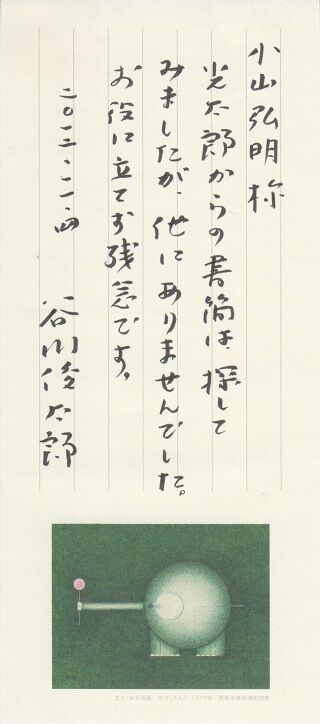 小山弘明様
光太郎からの書簡は、探して
みましたが、他にありませんでした。
お役に立てず残念です。
二〇一三、一一、四
谷川俊太郎
まど・みちお画 ぞう(さん) 1977年 周南市美術博物館蔵